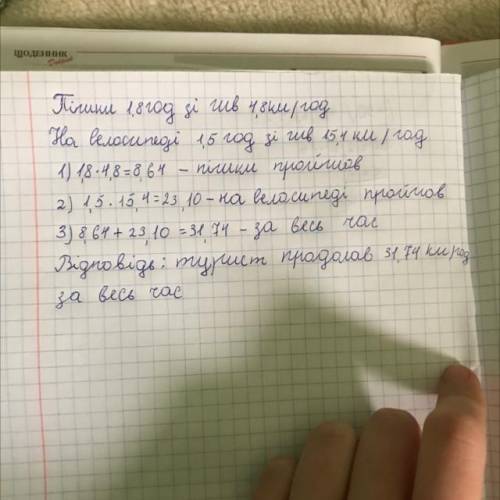 ЩОДЕННИК
Пішки 1,8год зі шв 4,8км/год
На велосипеді 1,5 год зі шв 15,4 км/год
1) 1,8·4,8=8,64 – пішки пройшов
2) 1,5·15,4=23,10–на велосипеді пройшов
3) 8,64+23,10=31,74 – за весь час
Відповідь: турист продолав 31,74 км/год
за весь час